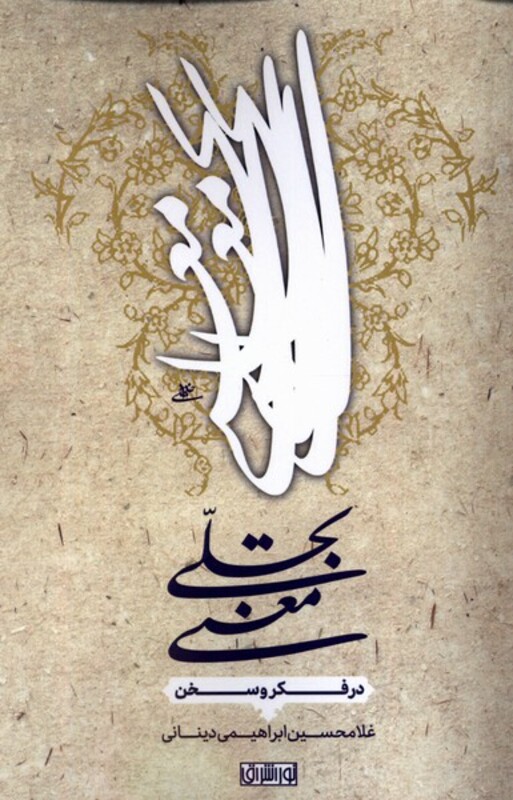 تجلّی
معنی
در فکر و سخن
غلامحسین ابراهیمی دینانی
نور اشراق